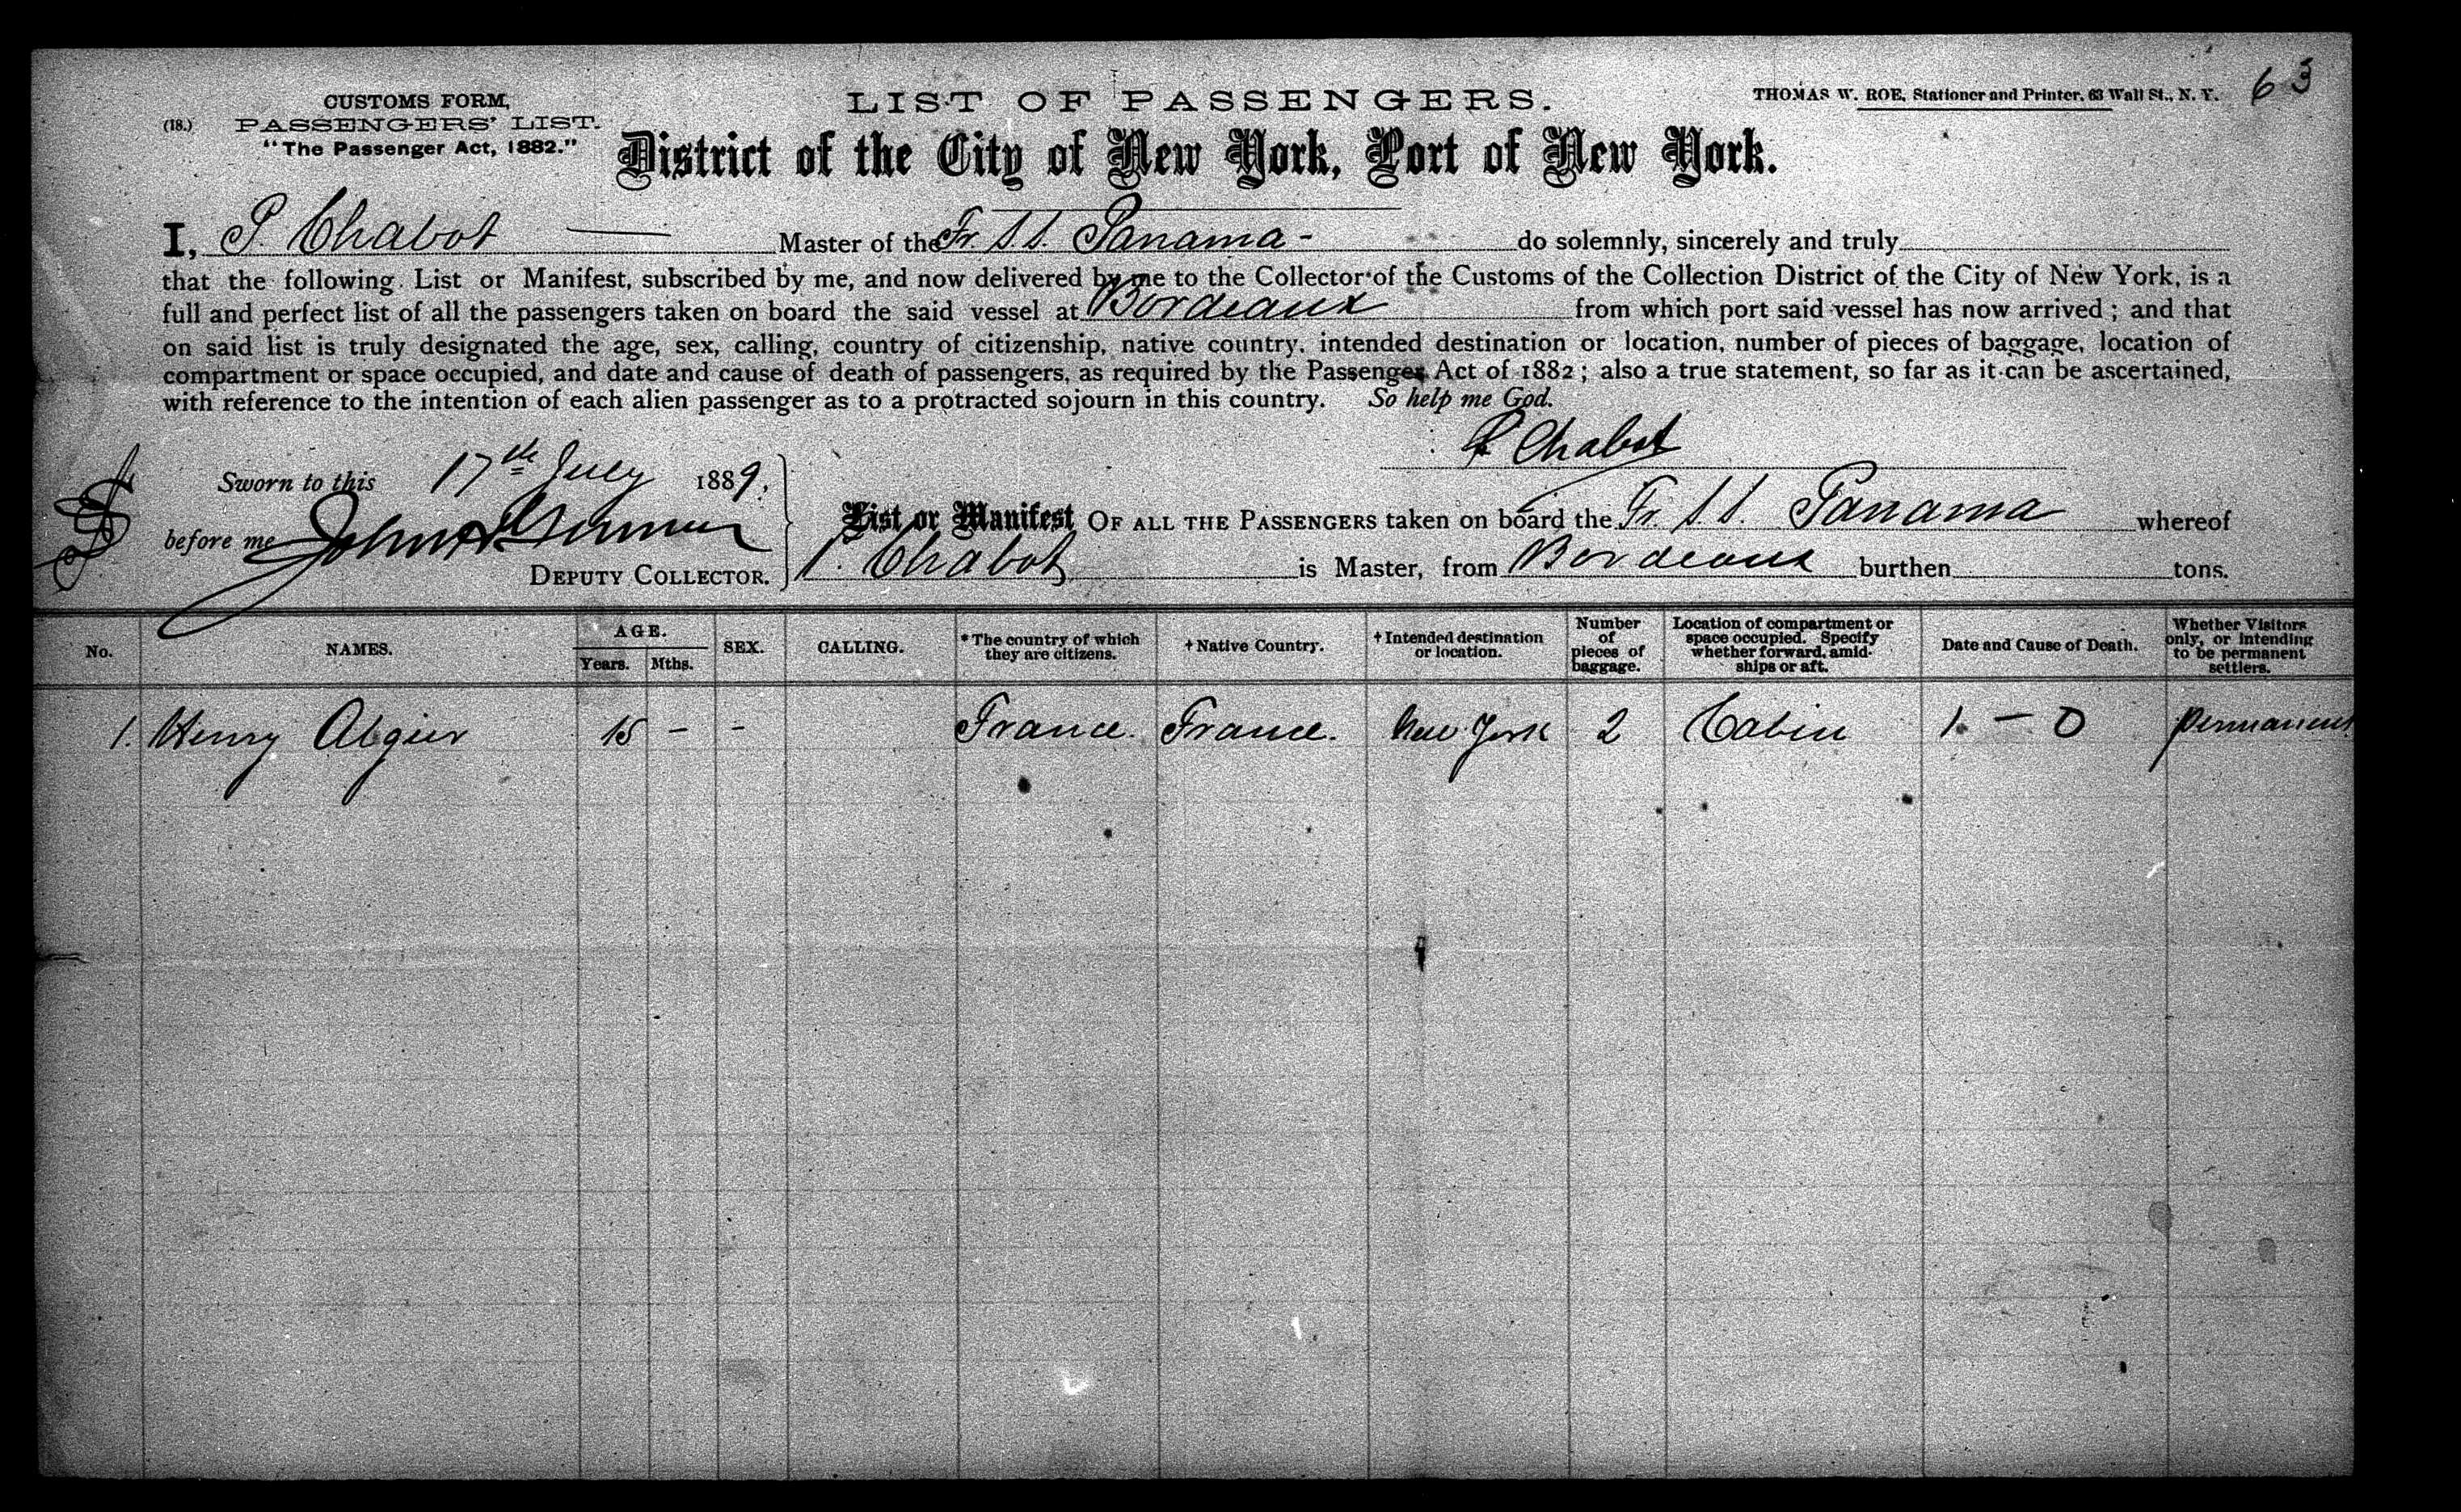 63
CUSTOMS FORM,
(18.) PASSENGERS' LIST.
"The Passenger Act, 1882."
LIST OF PASSENGERS.
THOMAS W. ROE, Stationer and Printer, 63 Wall St., N. Y.
District of the City of New York, Port of New York.
I, P. Chabot Master of the Fr. S.S. Panama - do solemnly, sincerely and truly
that the following List or Manifest, subscribed by me, and now delivered by me to the Collector of the Customs of the Collection District of the City of New York, is a
full and perfect list of all the passengers taken on board the said vessel at Bordeaux from which port said vessel has now arrived; and that
on said list is truly designated the age, sex, calling, country of citizenship, native country, intended destination or location, number of pieces of baggage, location of
compartment or space occupied, and date and cause of death of passengers, as required by the Passenger Act of 1882; also a true statement, so far as it can be ascertained,
with reference to the intention of each alien passenger as to a protracted sojourn in this country. So help me God.
P Chabot
Sworn to this 17th July 1889,
before me John
DEPUTY COLLECTOR.
List or Manifest OF ALL THE PASSENGERS taken on board the Fr. S.S. Panama whereof
P. Chabot is Master, from Bordeaux burthen tons.
No. NAMES. AGE. Years. Mths. SEX. CALLING. *The country of which they are citizens. †Native Country. †Intended destination or location. Number of pieces of baggage. Location of compartment or space occupied. Specify whether forward, amidships or aft. Date and Cause of Death. Whether Visitors only, or intending to be permanent settlers.
1. Henry Algier 15 - - France. France. New York 2 Cabin 1. - 0 permanent